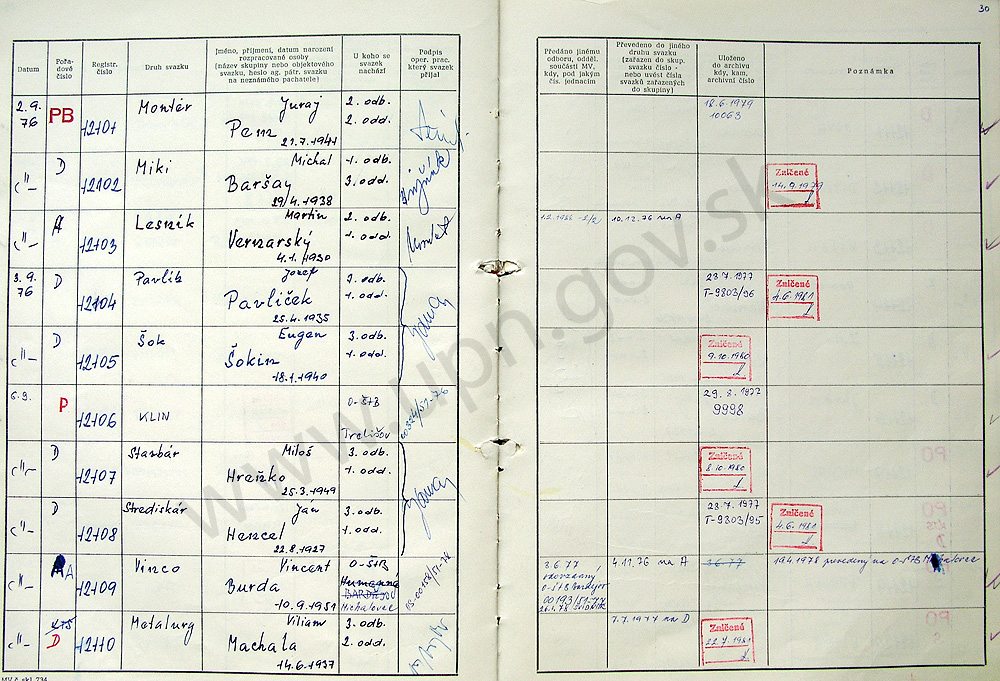 30
Datum
Pořadové číslo
Registr. číslo
Druh svazku
Jméno, příjmení, datum narození
rozpracované osoby
(název skupiny nebo objektového
svazku, heslo ag. pátr. svazku
na neznámého pachatele)
U koho se
svazek
nachází
Podpis
oper. prac.
který svazek
přijal
Předáno jinému
odboru, odděl.
součásti MV,
kdy, pod jakým
čís. jednacím
Převedeno do jiného
druhu svazku
(zařazen do skup.
svazku číslo -
nebo uvést čísla
svazků zařazených
do skupiny)
Uloženo
do archivu
kdy, kam,
archivní číslo
Poznámka
2. 9. 76 PB 12101 Montér Juraj 2. odb.
Penz 2. odd.
21.7.1941
18.6.1979
10063
-"- D 12102 Miki Michal 1. odb.
Baršay 3. odd.
29/4. 1938
Zničené
14.9.1979
-"- A 12103 Lesník Martin 2. odb.
Vernarský 1. odd.
4.1.1930
10.12.76 na A
3. 9. 76 D 12104 Pavlík Jozef 2. odb.
Pavlíček 1. odd.
25.4.1935
23.7.1977
T-9803/96
Zničené
4.6.1981
-"- D 12105 Šok Eugen 3. odb.
Šokin 1. odd.
18.1.1940
Zničené
9.10.1980
6.9. P 12106 KLIN O-ŠtB
Trebišov
29.8.1977
9998
-"- D 12107 Stavbár Miloš 3. odb.
Hrenko 1. odd.
25.3.1949
Zničené
8.10.1980
-"- D 12108 Strediskár Jan 3. odb.
Hencel 1. odd.
22.8.1927
23.7.1977
T-9803/95
Zničené
4.6.1981
-"- A 12109 Vinco Vincent O-ŠtB
Burda Humenné
BARDEJOV
10.9.1951 Michalovce
3.6.77
O-ŠtB Bardejov
00193/51-77
4.11.76 na A
3.6.77
19.4.1978 prevedený na O-ŠTB Michalovce
-"- D 12110 Metalurg Viliam 3. odb.
Machala 2. odd.
14.6.1937
7.7.1977 na D
Zničené
www.upn.gov.sk